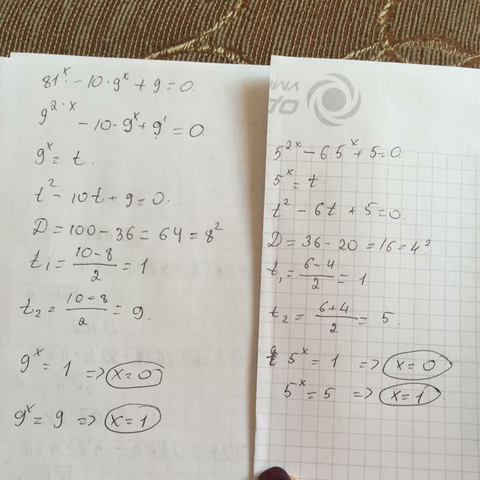 81^x - 10·9^x + 9 = 0
9^{2·x} - 10·9^x + 9^1 = 0
9^x = t.
t^2 - 10t + 9 = 0.
D = 100 - 36 = 64 = 8^2
t_1 = \frac{10-8}{2} = 1
t_2 = \frac{10+8}{2} = 9.
9^x = 1 => x=0
9^x = 9 => x=1
5^{2x} - 6·5^x + 5 = 0.
5^x = t.
t^2 - 6t + 5 = 0.
D = 36 - 20 = 16 = 4^2
t_1 = \frac{6-4}{2} = 1
t_2 = \frac{6+4}{2} = 5.
5^x = 1 => x=0
5^x = 5 => x=1